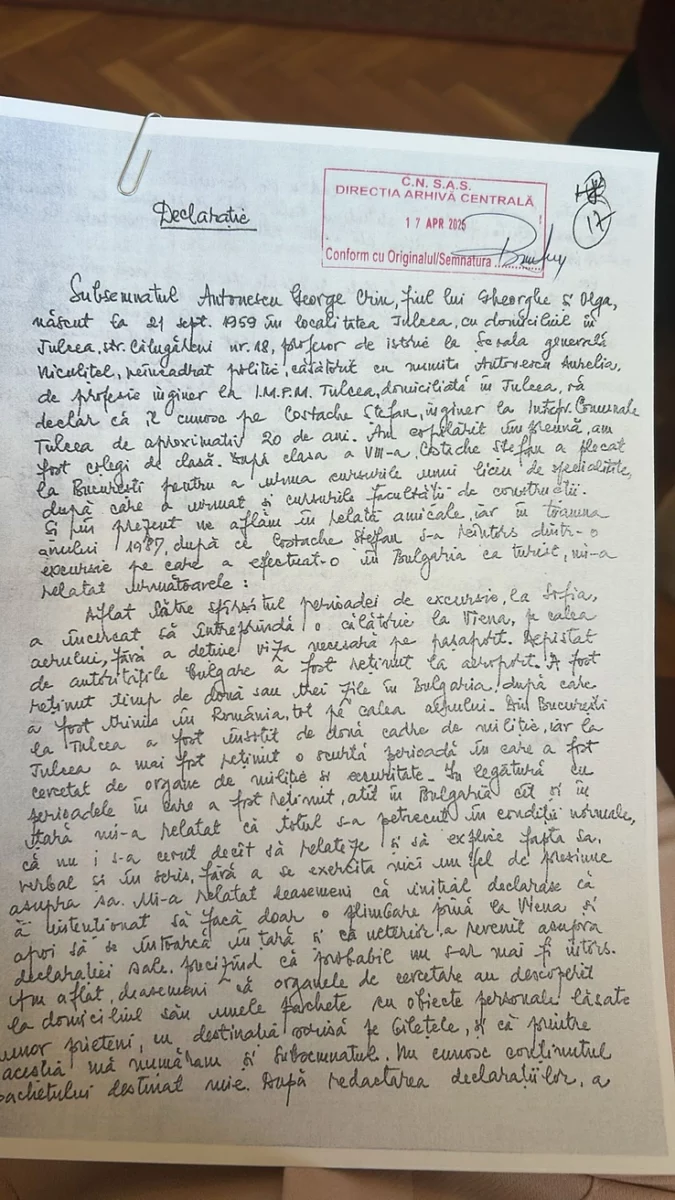 C.N. S.A.S.
DIRECȚIA ARHIVĂ CENTRALĂ
17 APR 2025
Conform cu Originalul/Semnatura
17
Declarație
Subsemnatul Antonescu George Crin, fiul lui Gheorghe și Olga,
născut la 21 sept. 1959 în localitatea Tulcea, cu domiciliul în
Tulcea, str. Călugăreni nr. 18, profesor de istorie la Școala generală
Niculițel, neîncadrat politic, căsătorit cu numita Antonescu Aurelia,
de profesie inginer la I.M.P.M. Tulcea, domiciliată în Tulcea,
declar că îl cunosc pe Costache Ștefan, inginer la Întrepr. Comunale
Tulcea de aproximativ 20 de ani. Am copilărit împreună, am
fost colegi de clasă. După clasa a VIII-a, Costache Ștefan a plecat
la București pentru a urma cursurile unui liceu de specialitate,
după care a urmat și cursurile facultății de construcții.
Și în prezent ne aflăm în relații amicale, iar în toamna
anului 1987, după ce Costache Ștefan s-a reîntors dintr-o
excursie pe care a efectuat-o în Bulgaria ca turist, mi-a
relatat următoarele:
Aflat către sfîrșitul perioadei de excursie, la Sofia,
a încercat să întreprindă o călătorie la Viena, pe calea
aerului, fără a deține viza necesară pe pașaport. Depistat
de autoritățile bulgare a fost reținut la aeroport. A fost
reținut timp de două sau trei zile în Bulgaria, după care
a fost trimis în România, tot pe calea aerului. Din București
la Tulcea a fost însoțit de două cadre de miliție, iar la
Tulcea a mai fost reținut o scurtă perioadă în care a fost
cercetat de organe de miliție și securitate. În legătură cu
perioadele în care a fost reținut, atît în Bulgaria cît și în
țară mi-a relatat că totul s-a petrecut în condiții normale,
că nu i s-a cerut decît să relateze și să explice fapta sa,
verbal și în scris, fără a se exercita nici un fel de presiune
asupra sa. Mi-a relatat deasemeni că inițial declarase că
a intenționat să facă doar o plimbare pînă la Viena și
apoi să se întoarcă în țară și că ulterior a revenit asupra
declarației sale, precizînd că probabil nu s-ar mai fi întors.
Am aflat, deasemeni că organele de cercetare au descoperit
la domiciliul său unele pachete cu obiecte personale lăsate
unor prieteni, cu destinația scrisă pe bilețele, și că printre
aceștia mă număram și subsemnatul. Nu cunosc conținutul
pachetului destinat mie. După redactarea declarațiilor, a